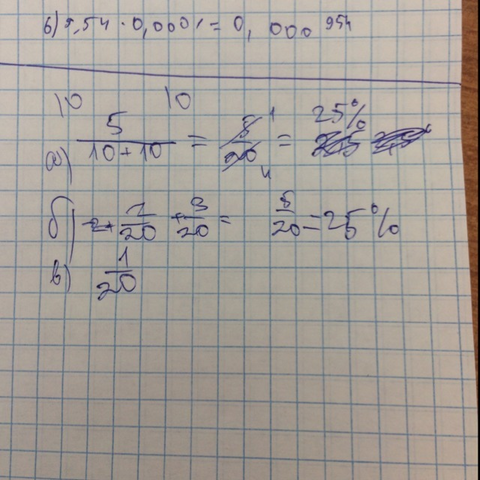 б) 9,54 · 0,0001 = 0, 000 954
10 10
а) 5/(10+10) = 5/20 1 4 = 25%
б) 2/20 + 3/20 = 5/20 = 25%
в) 1/20